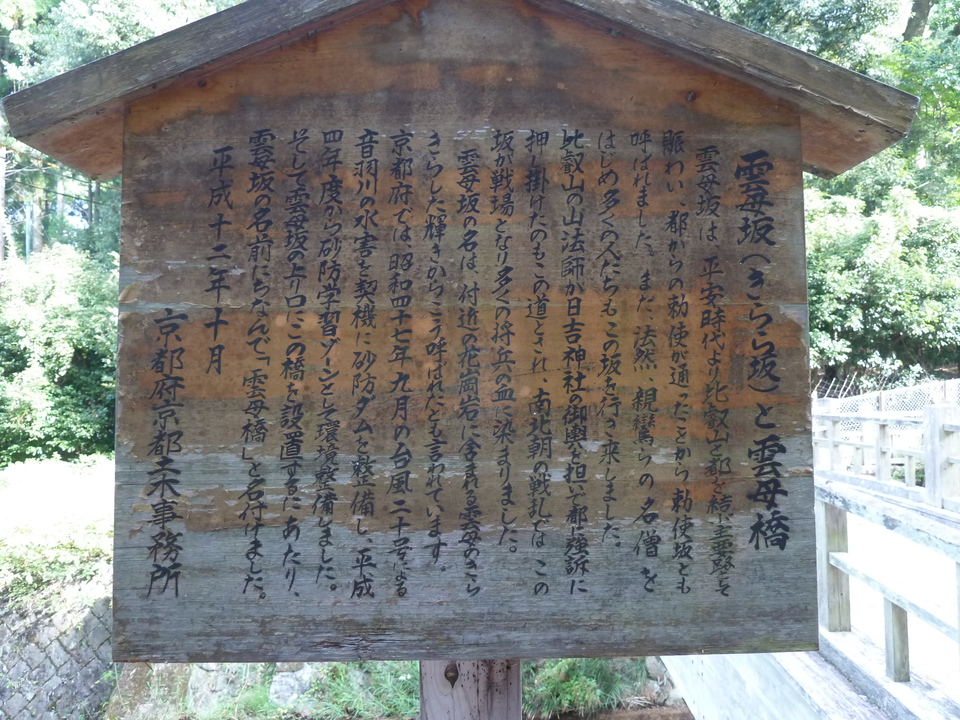 雲母坂(きらら坂)と雲母橋
雲母坂は、平安時代より比叡山と都を結ぶ主要路として
賑わい、都からの勅使が通ったことから勅使坂とも
呼ばれました。また、法然、親鸞らの名僧を
はじめ多くの人たちもこの坂を行き来しました。
比叡山の山法師が日吉神社の御輿を担いで都へ強訴に
押し掛けたのもこの道とされ、南北朝の戦乱ではこの
坂が戦場となり多くの将兵の血に染まりました。
雲母坂の名は、付近の花崗岩に含まれる雲母のきら
きらした輝きからこう呼ばれたとも言われています。
京都府では、昭和四十七年九月の台風二十号による
音羽川の水害を契機に砂防ダムを整備し、平成
四年度から砂防学習ゾーンとして環境整備しました。
そして雲母坂の上り口にこの橋を設置するにあたり、
雲母坂の名前にちなんで「雲母橋」と名付けました。
平成十二年十月
京都府京都土木事務所